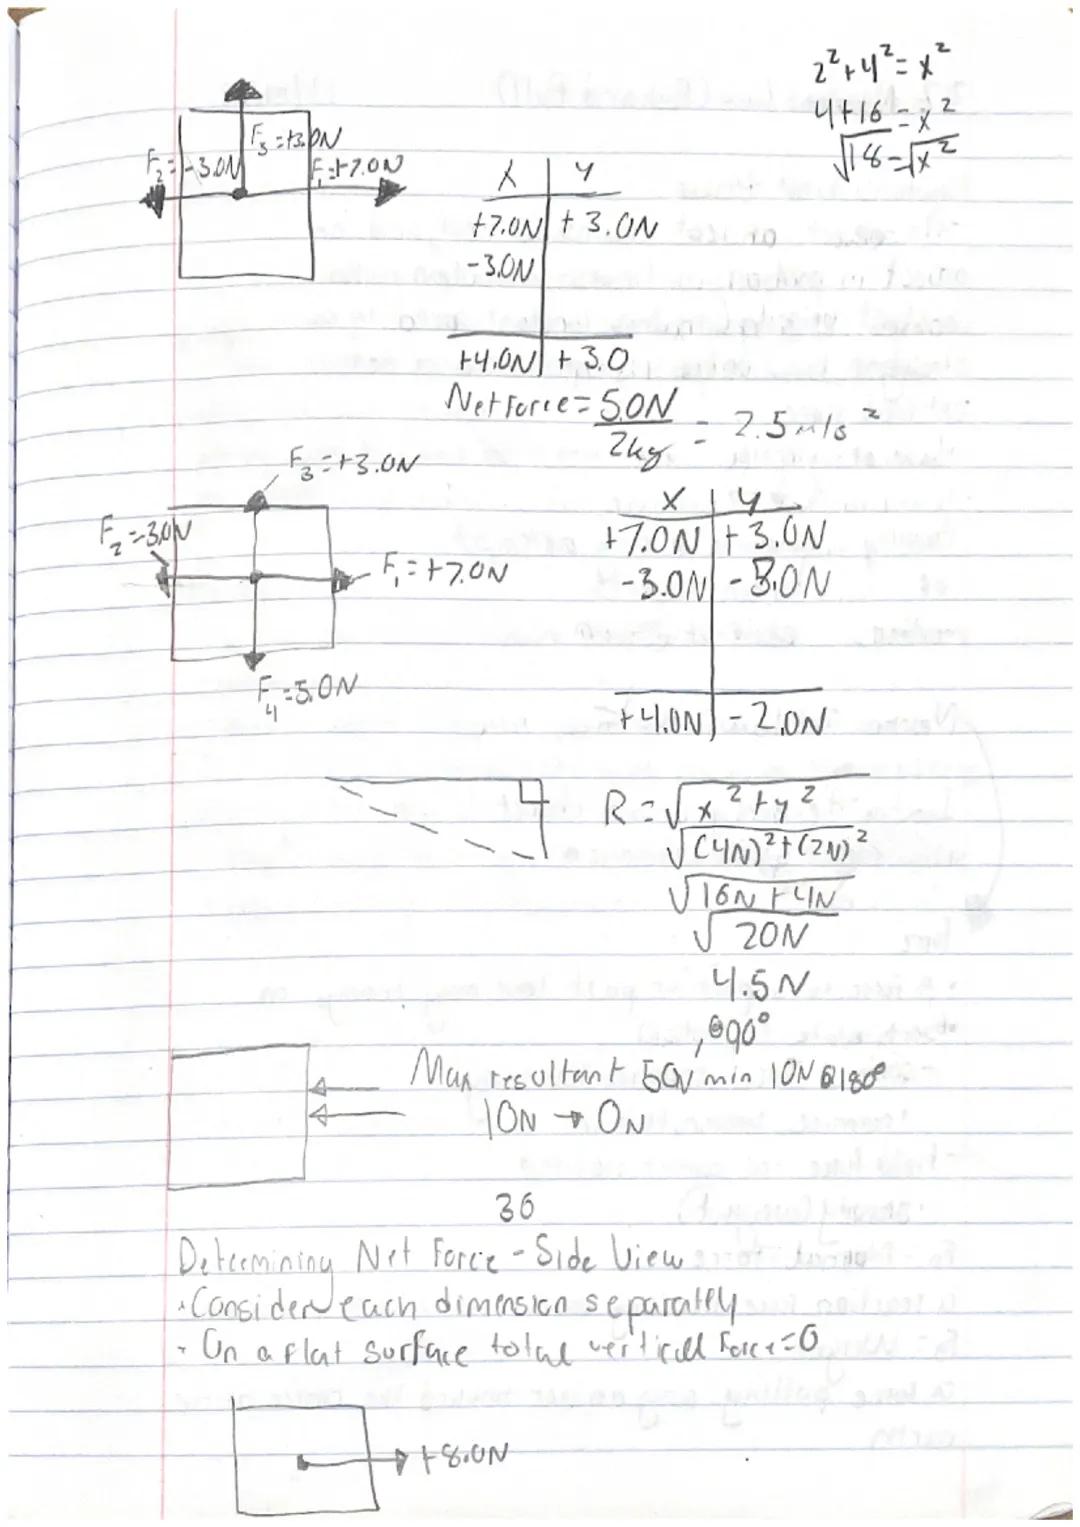 2²+4²=x²
4+16=x²
√18=√x²
F₃=+3.0N
F₂=-3.0N
F₁=+7.0N
x y
+7.0N +3.0N
-3.0N
+4.0N +3.0
Net Force=5.0N/2kg = 2.5m/s²
F₃=+3.0N
F₂=-3.0N
F₁=+7.0N
F₄=5.0N
x y
+7.0N +3.0N
-3.0N -5.0N
+4.0N -2.0N
R=√x²+y²
√(4N)²+(2N)²
√16N+4N
√20N
4.5N
,@90°
Max resultant 50N min 10N @180°
10N → 0N
36
Determining Net Force - Side View
·Consider each dimension separatlly
·On a flat surface total verticall Force=0
+8.0N